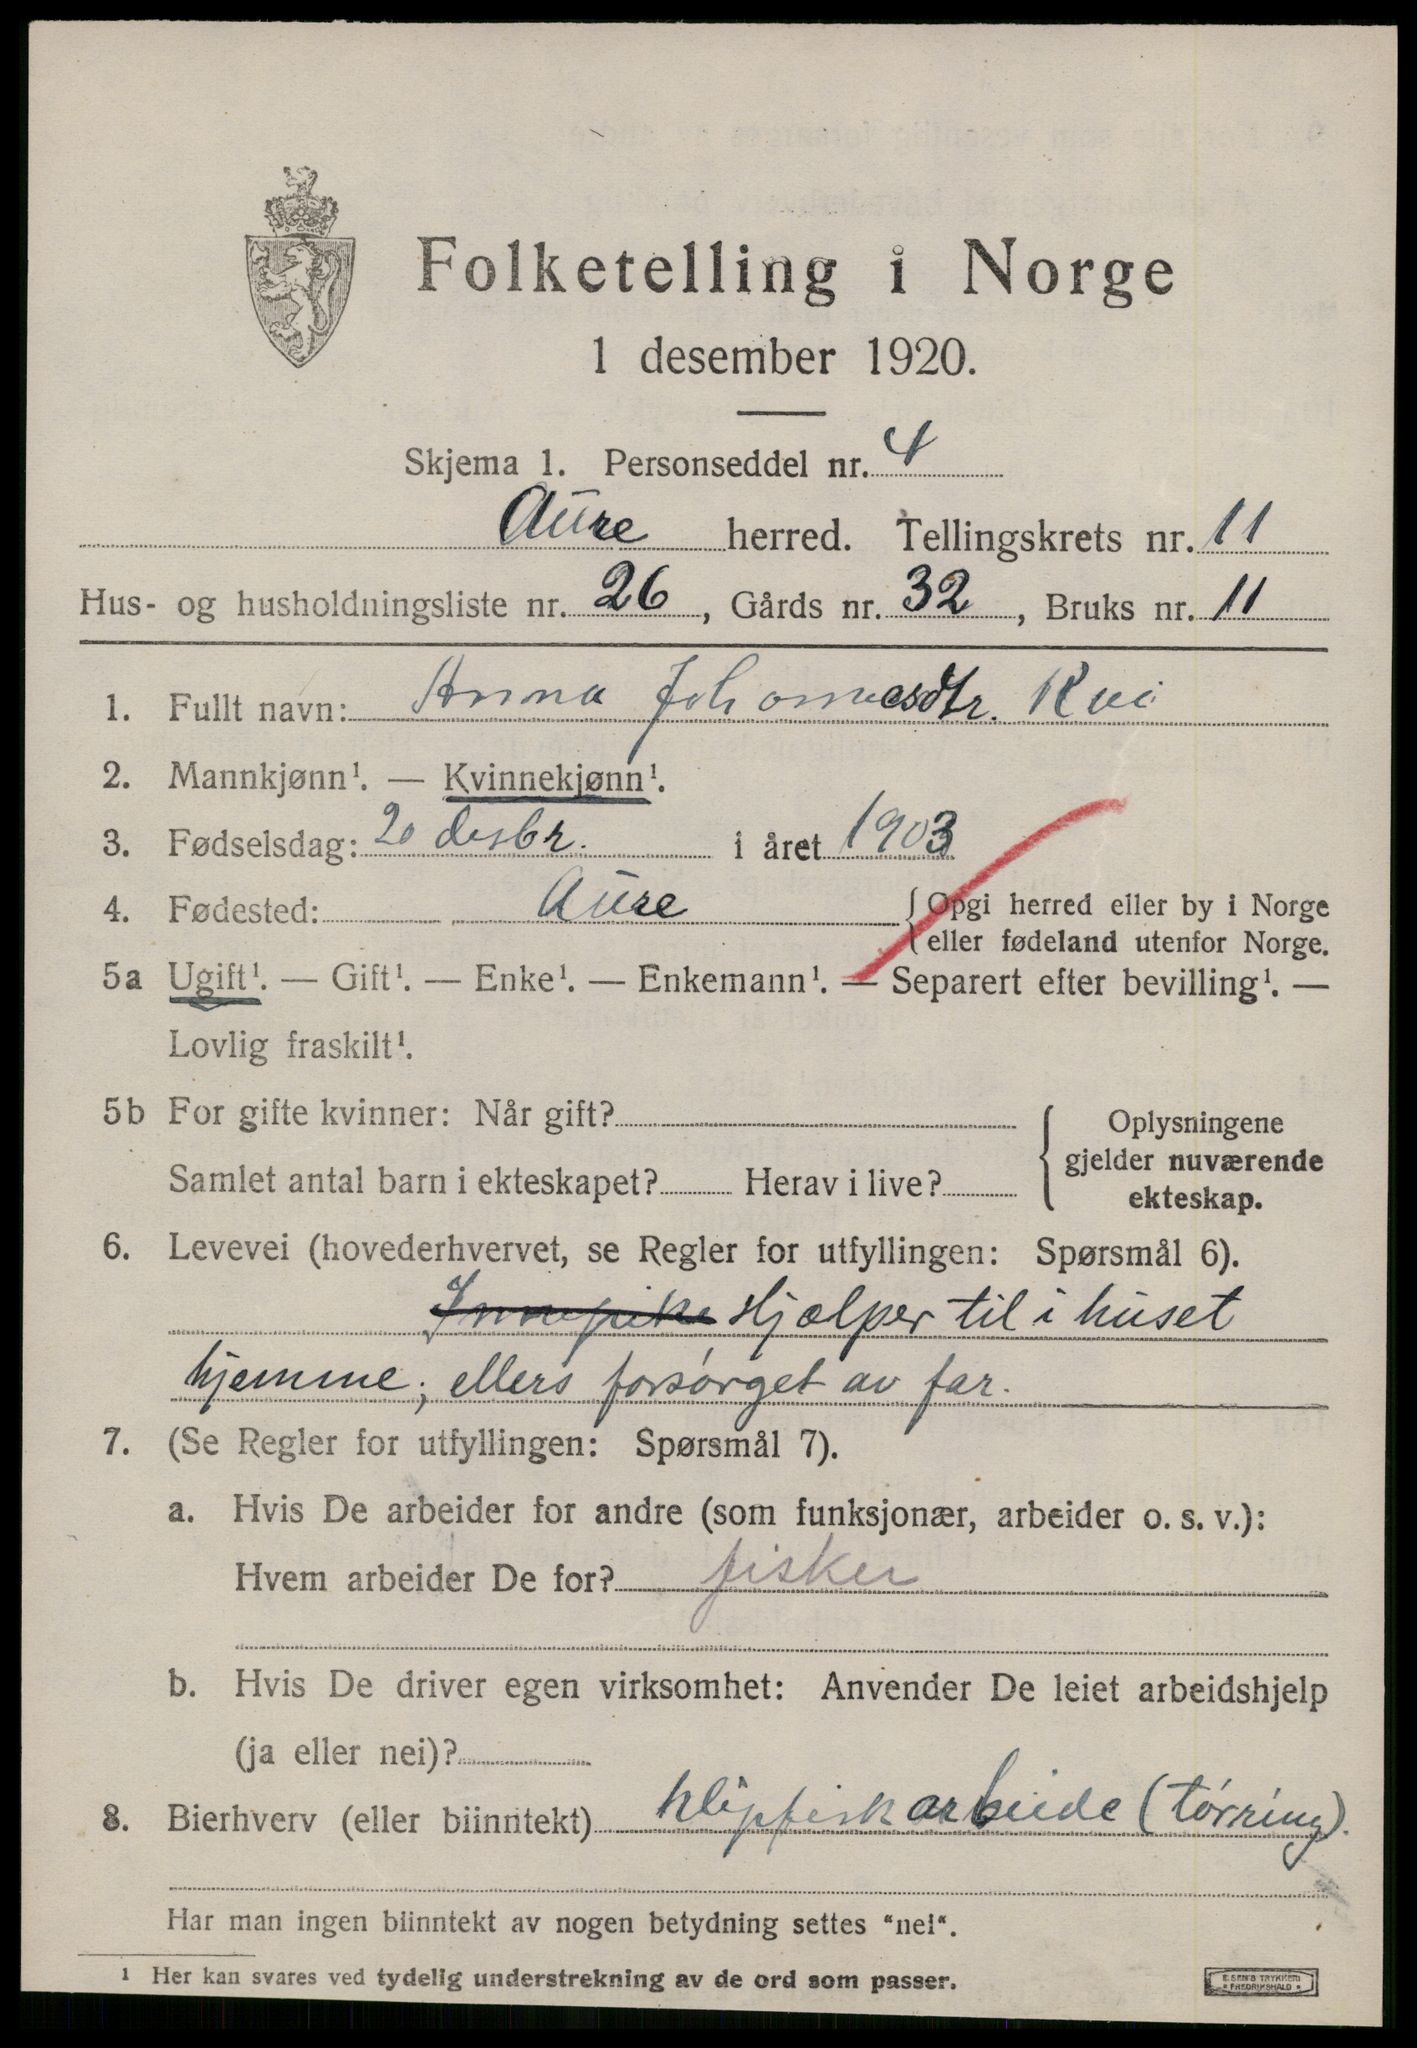 Folketelling i Norge
1 desember 1920.
Skjema 1. Personseddel nr. 4
Aure herred. Tellingskrets nr. 11
Hus- og husholdningsliste nr. 26, Gårds nr. 32, Bruks nr. 11
1. Fullt navn: Anna Johannesdtr.
2. Mannkjønn¹. — Kvinnekjønn¹.
3. Fødselsdag: 20 desbr. i året 1903
4. Fødested: Aure { Opgi herred eller by i Norge
eller fødeland utenfor Norge.
5a Ugift¹. — Gift¹. — Enke¹. — Enkemann¹. — Separert efter bevilling¹. —
Lovlig fraskilt¹.
5b For gifte kvinner: Når gift?
Samlet antal barn i ekteskapet? Herav i live?
{ Oplysningene
gjelder nuværende
ekteskap.
6. Levevei (hovederhvervet, se Regler for utfyllingen: Spørsmål 6).
Hjælper til i huset
hjemme; ellers forsørget av far.
7. (Se Regler for utfyllingen: Spørsmål 7).
a. Hvis De arbeider for andre (som funksjonær, arbeider o. s. v.):
Hvem arbeider De for? fisker
b. Hvis De driver egen virksomhet: Anvender De leiet arbeidshjelp
(ja eller nei)?
8. Bierhverv (eller biinntekt) klipfiskarbeide (tørring).
Har man ingen biinntekt av nogen betydning settes "nei".
¹ Her kan svares ved tydelig understrekning av de ord som passer.
E. SEM'S TRYKKERI
• FREDRIKSHALD •